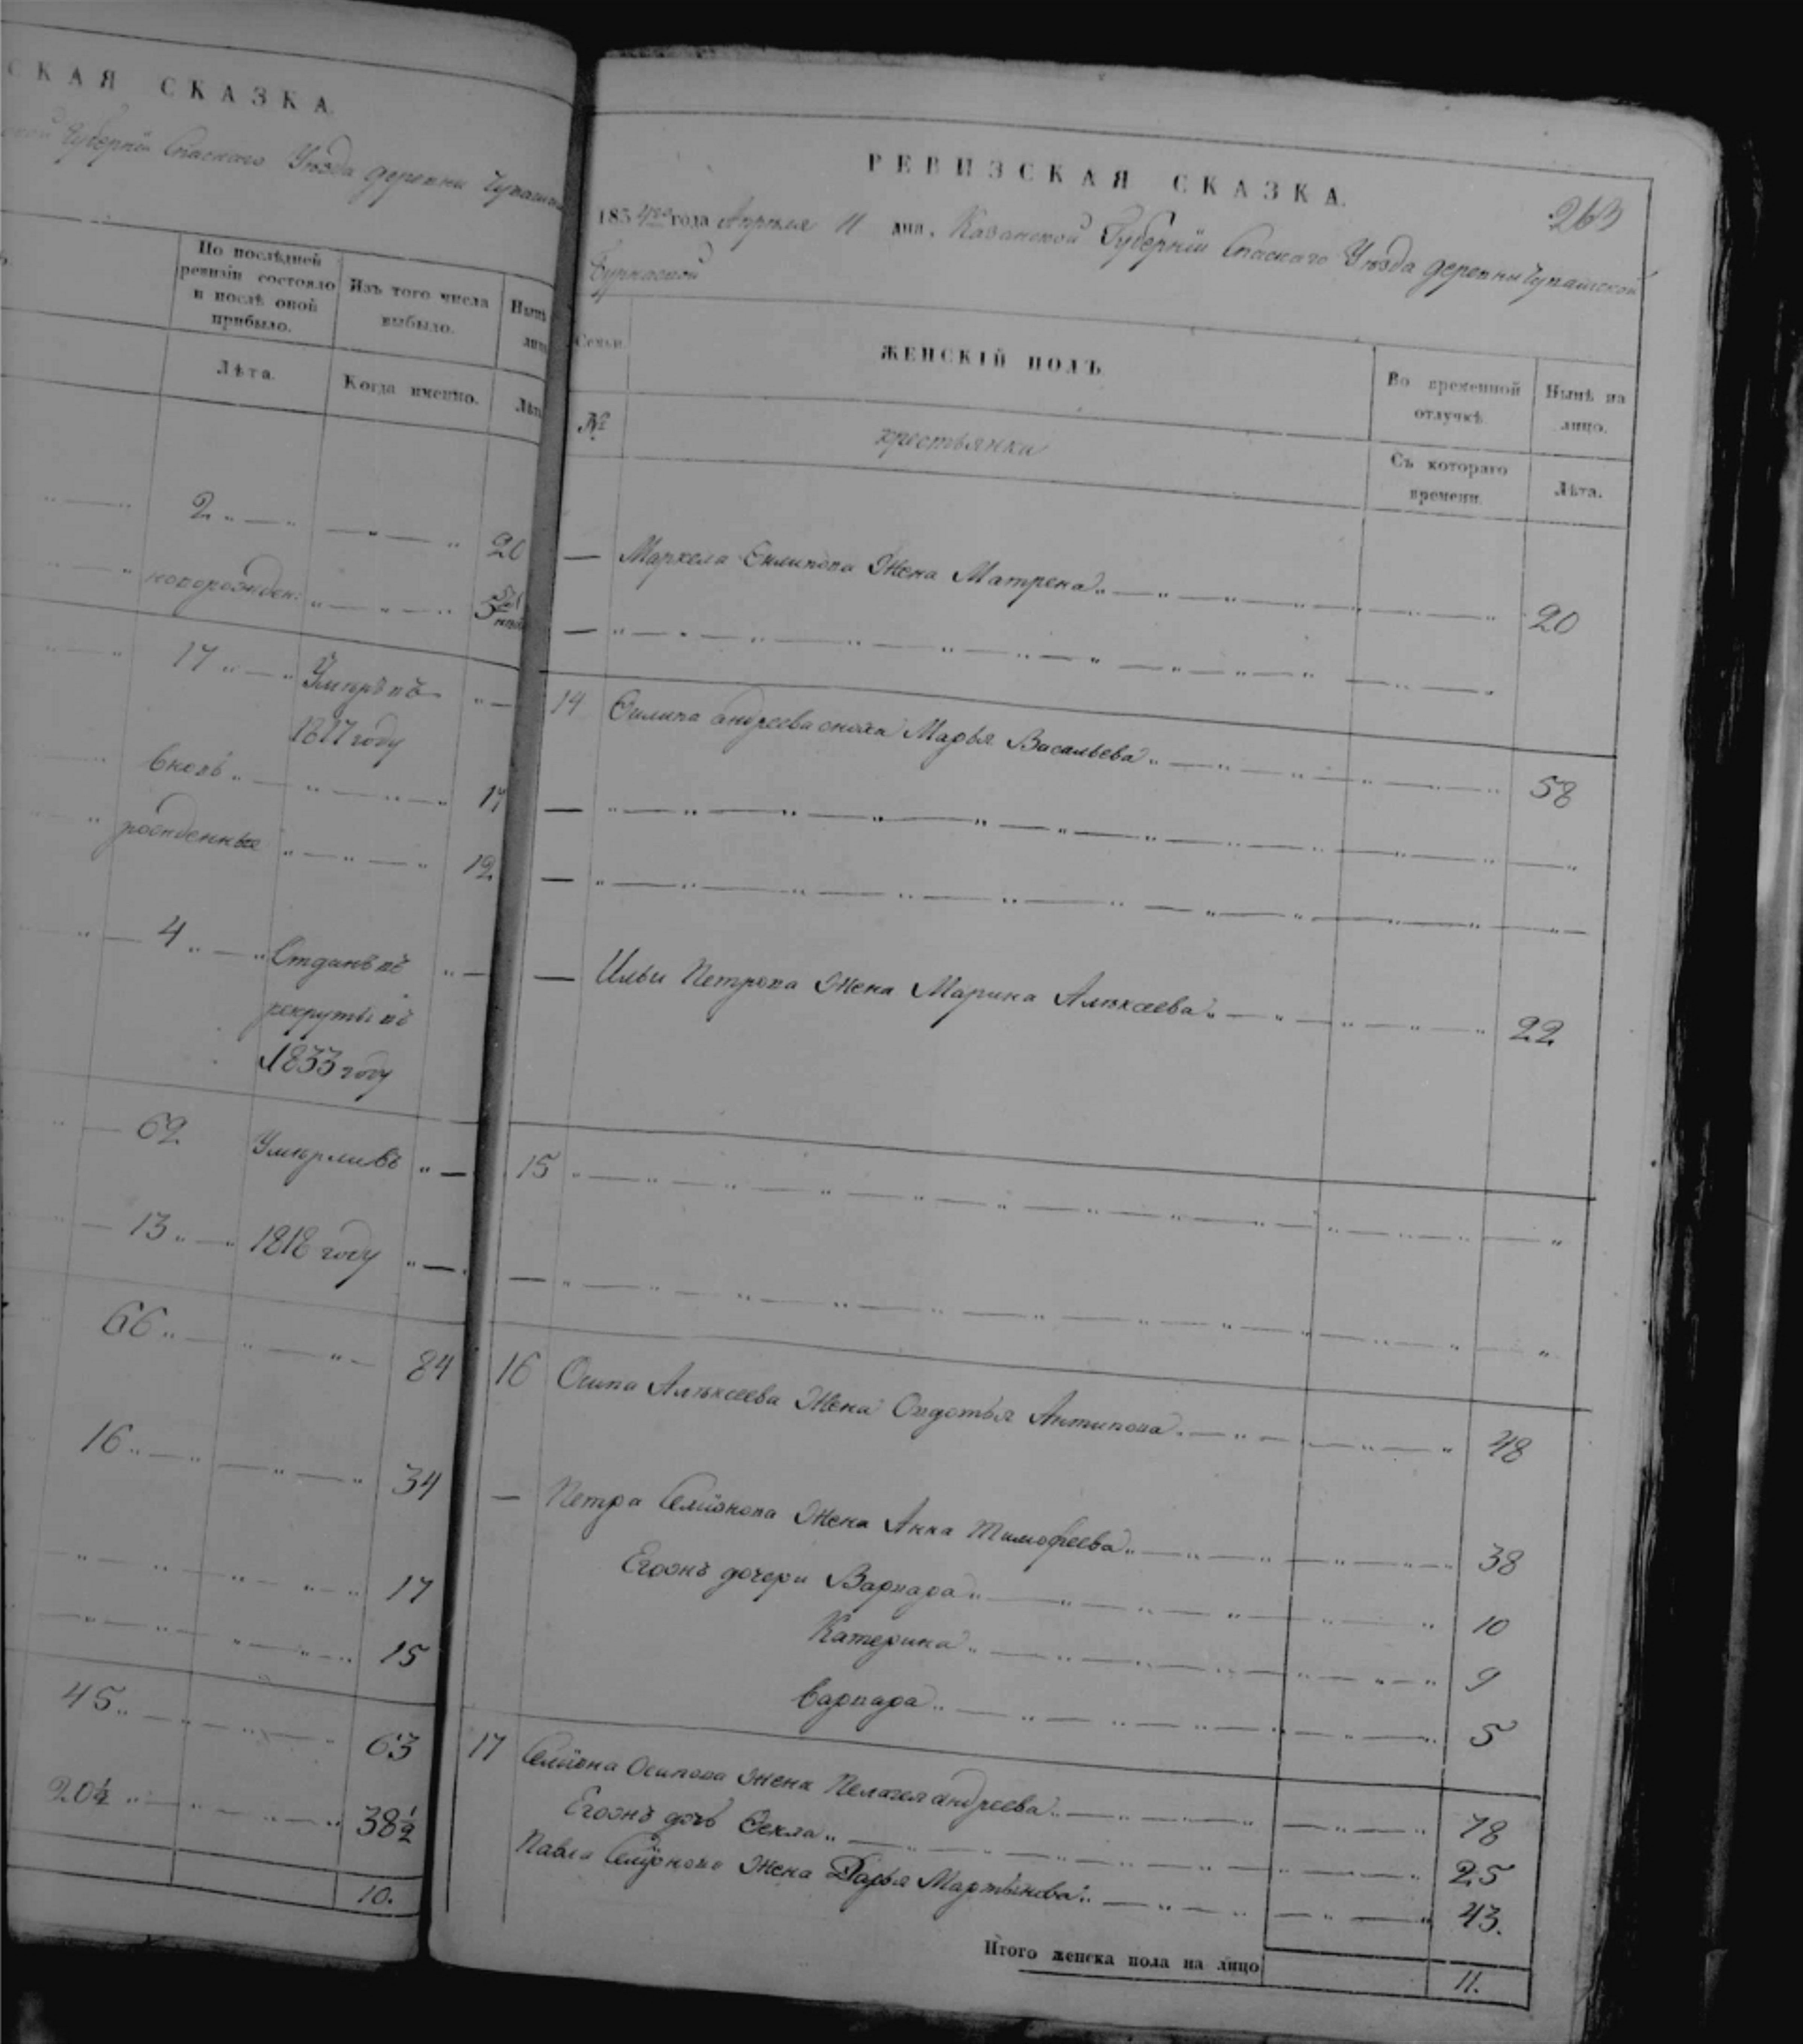 СКАЯ СКАЗКА.
Губерніи Спаскаго Уѣзда деревни
По послѣдней
ревизіи состояло
и послѣ оной
прибыло.
Изъ того числа
выбыло.
Нынѣ
лицо
Лѣта.
Когда именно.
Лѣта
2 „ — „ — „ — „ 20
новорожден: „ — „ — „ 5
17 „ — „ Умеръ въ „ —
1817 году
вновь „ — „ — „ 17
рожденные „ — „ — „ 12
4 „ — „ Отданъ въ „ —
рекруты въ
1833 году
62 Умерли въ „ —
13 „ — „ 1818 году „ —
66 „ — „ — „ — 84
16 „ — „ — „ — „ 34
„ — „ — „ — „ 17
„ — „ — „ — „ 15
45 „ — „ — „ — 63
20½ „ — „ — „ — „ 38½
10.
РЕВИЗСКАЯ СКАЗКА.
263
1834го года Апреля 11 дня. Казанской Губерніи Спаскаго Уѣзда деревни Чувашской
Бурнаской
Семьи.
ЖЕНСКІЙ ПОЛЪ
Во временной
отлучкѣ.
Нынѣ на
лицо.
№
крестьянки
Съ котораго
времени.
Лѣта.
— Маркела Филипова Жена Матрена „ — „ — „ 20
— „ — „ — „ — „ — „
14 Филипа андреева сноха Марья Васильева „ — „ — „ 58
— „ — „ — „ — „ — „
— „ — „ — „ — „ — „
— Ильи Петрова Жена Марина Алексеева „ — „ — „ 22
15 „ — „ — „ — „ — „
— „ — „ — „ — „ — „
16 Осипа Алексеева Жена Овдотья Антипова „ — „ — „ 48
— Петра Семіонова Жена Анна Тимофеева „ — „ — „ 38
Егоонъ дочери Варвара „ — „ — „ 10
Катерина „ — „ — „ 9
Варвара „ — „ — „ 5
17 Семіона Осипова Жена Пелагея андреева „ — „ — „ 78
Егоонъ дочь Фекла „ — „ — „ 25
Павла Семіонова Жена Дарья Мартынова „ — „ — „ 43.
Итого женска пола на лицо
11.